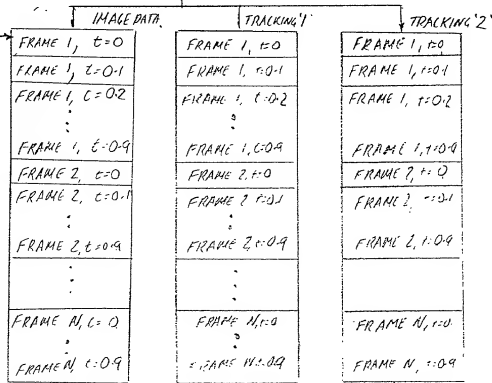 IMAGE DATA
FRAME 1, t=0
FRAME 1, t=0.1
FRAME 1, t=0.2
FRAME 1, t=0.9
FRAME 2, t=0
FRAME 2, t=0.1
FRAME 2, t=0.9
FRAME N, t=0
FRAME N, t=0.9
TRACKING '1'
FRAME 1, t=0
FRAME 1, t=0.1
FRAME 1, t=0.2
FRAME 1, t=0.9
FRAME 2, t=0
FRAME 2 t=0.1
FRAME 2, t=0.9
FRAME N, t=0
FRAME N t=0.9
TRACKING '2'
FRAME 1, t=0
FRAME 1, t=0.1
FRAME 1, t=0.2
FRAME 1, t=0.9
FRAME 2, t=0
FRAME 2, t=0.1
FRAME 2, t=0.9
FRAME N, t=0
FRAME N, t=0.9